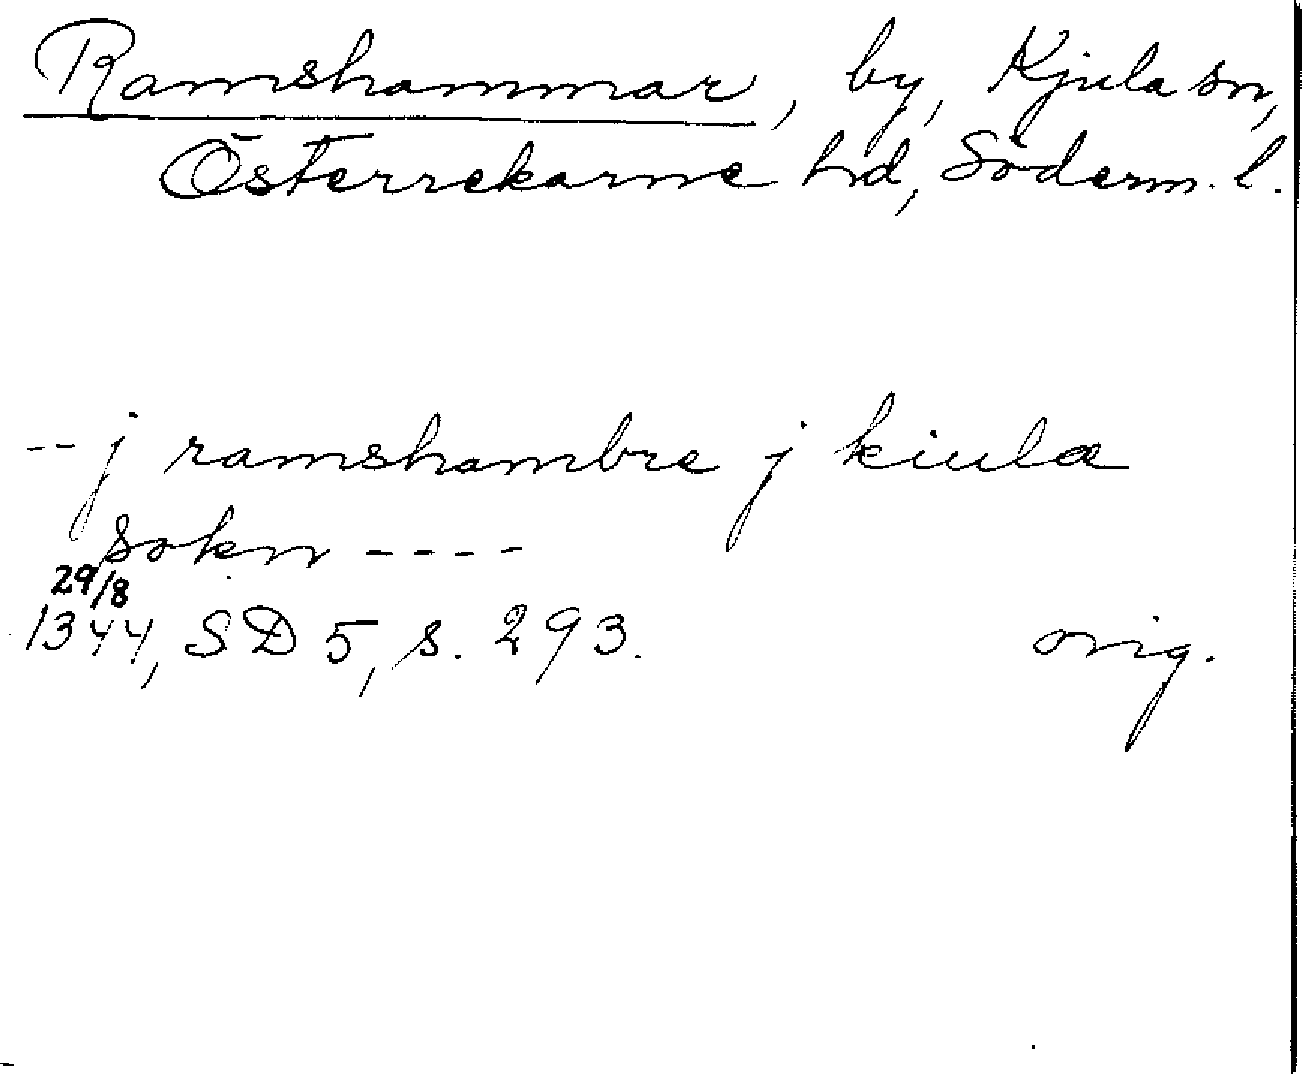 Ramshammar, by, Kjula sn,
Österrekarne hd, Söderm. l.
-- j ramshambre j kiula
sokn ----
29/8
1344, SD 5, s. 293. orig.